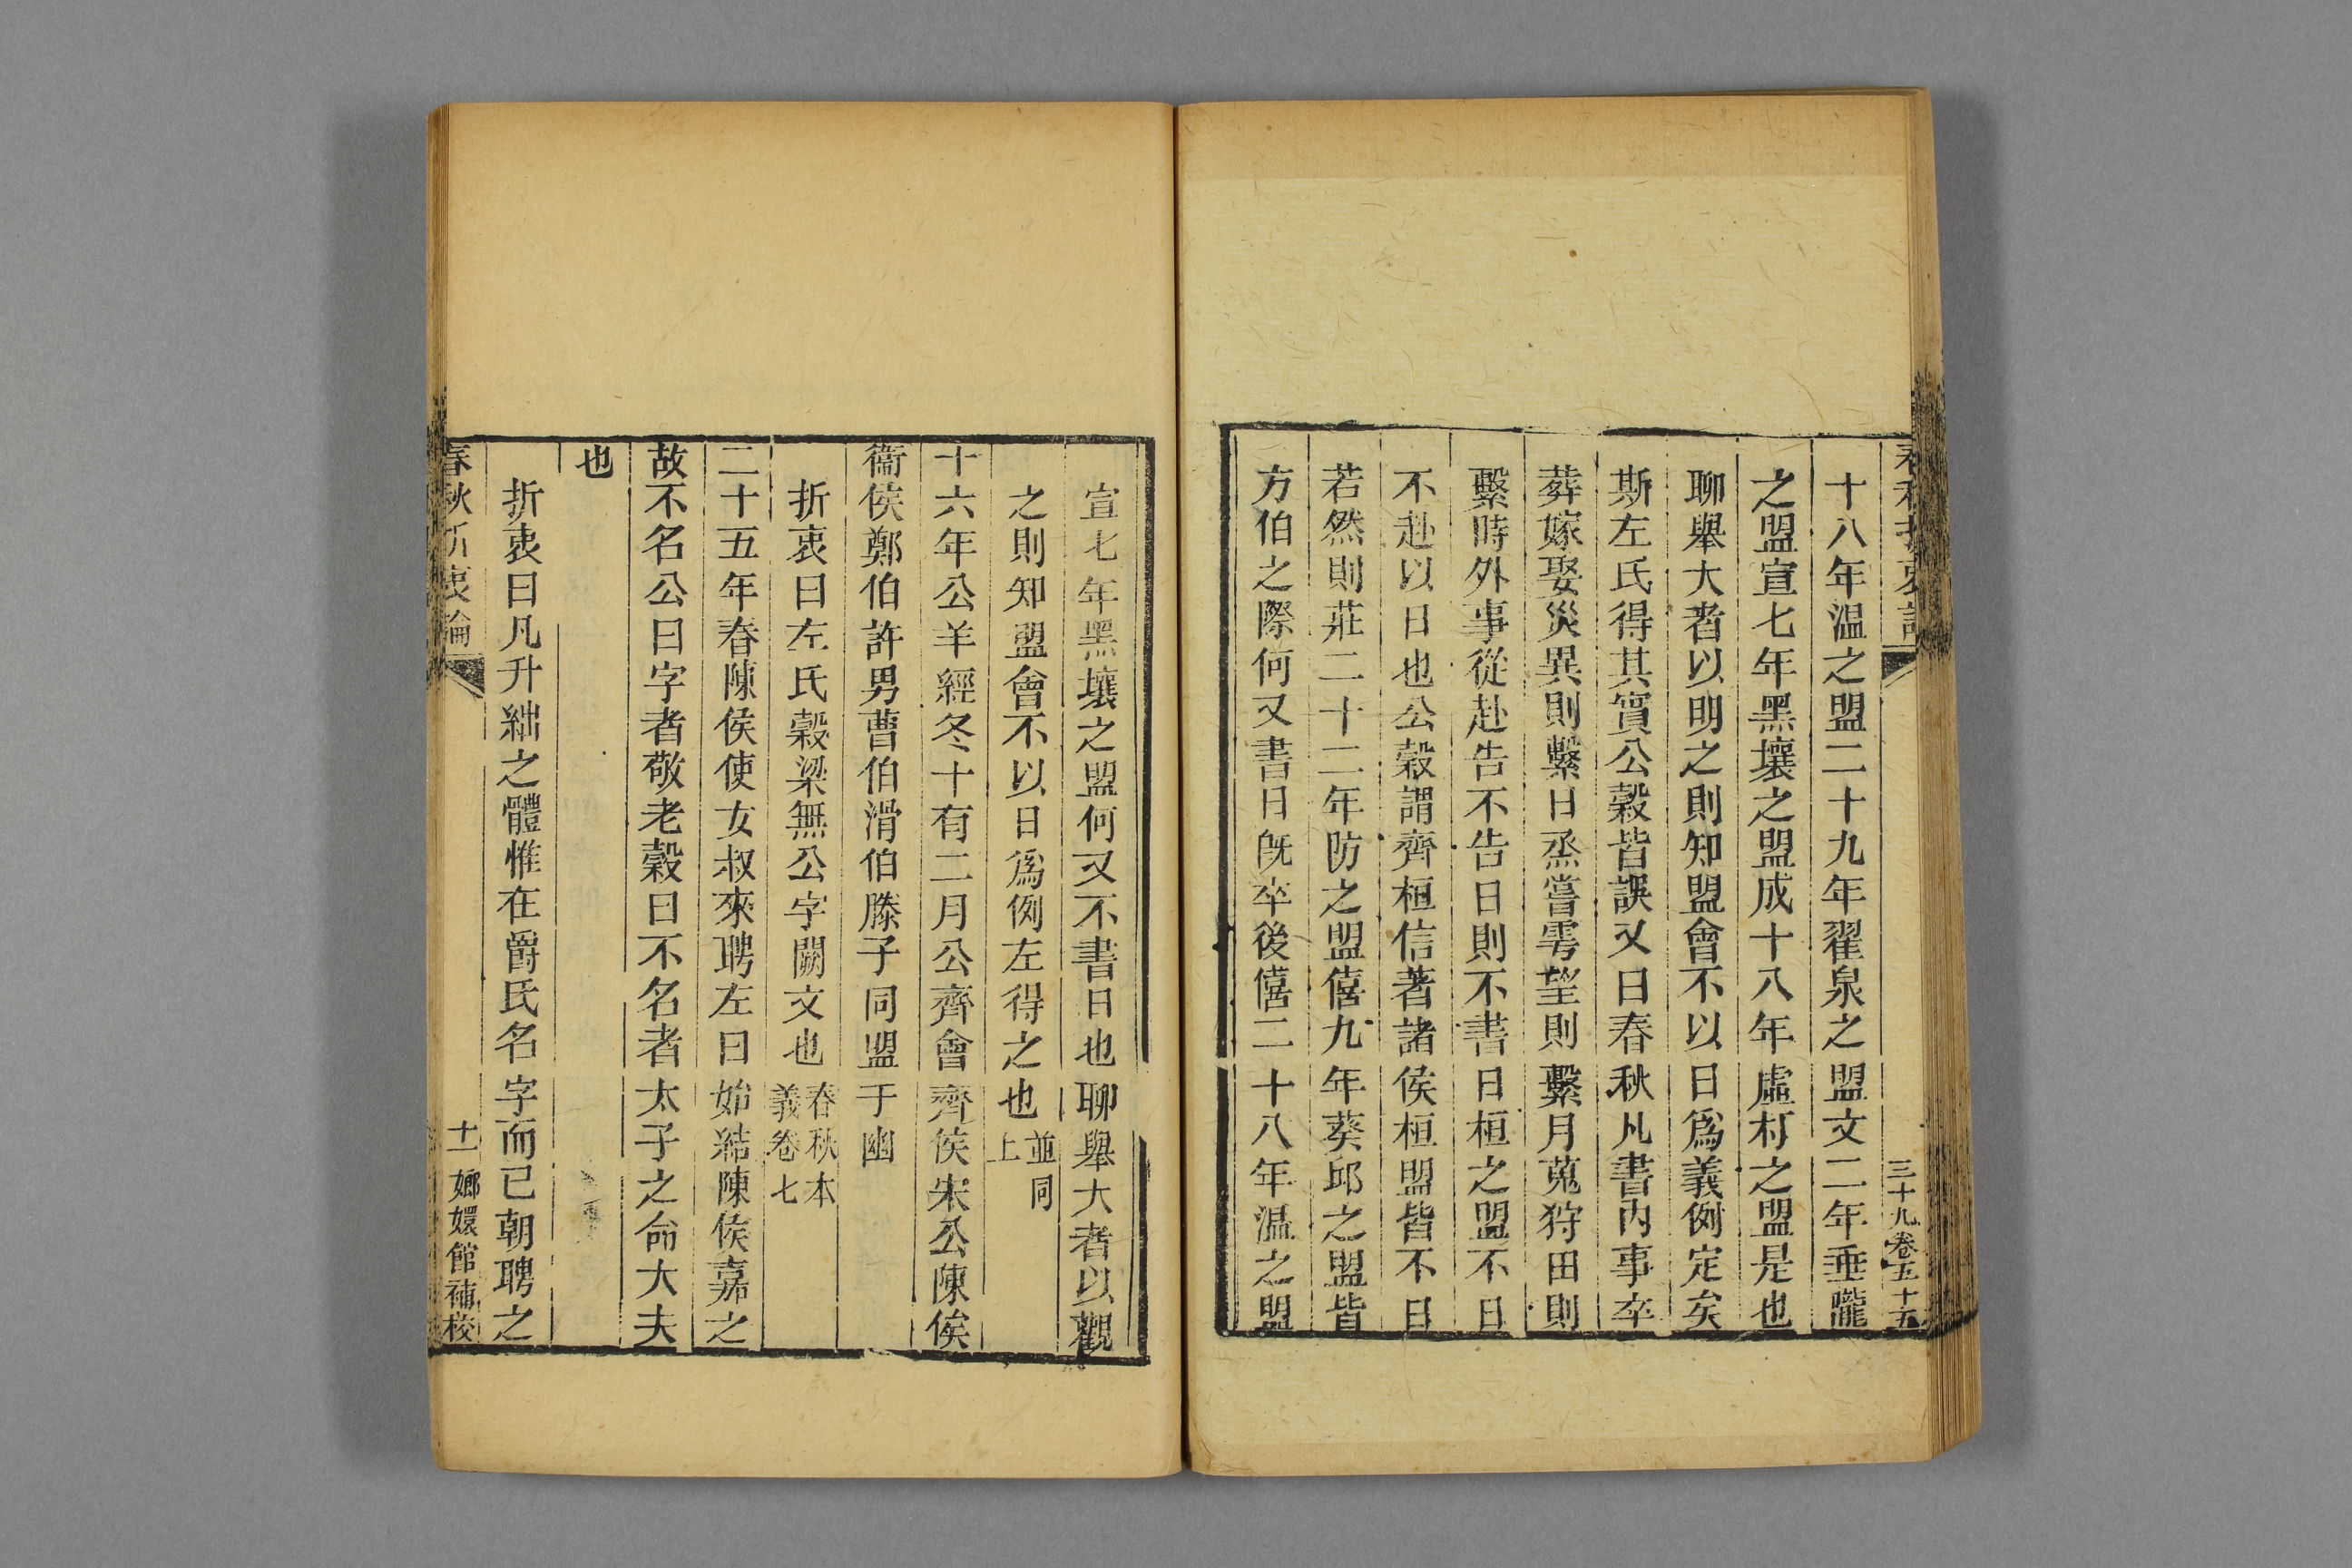 春秋折衷論
三十九卷五十五
十八年温之盟二十九年翟泉之盟文二年垂隴
之盟宣七年黑壤之盟成十八年虛朾之盟是也
聊舉大者以明之則知盟會不以日爲義例定矣
斯左氏得其實公穀皆誤又曰春秋凡書內事卒
葬嫁娶災異則繫日烝嘗雩望則繫月蒐狩田則
繫時外事從赴告不告日則不書日桓之盟不日
不赴以日也公穀謂齊桓信著諸侯桓盟皆不日
若然則莊二十二年防之盟僖九年葵邱之盟皆
方伯之際何又書日旣卒後僖二十八年温之盟
宣七年黑壤之盟何又不書日也聊舉大者以觀
之則知盟會不以日爲例左得之也並同上
十六年公羊經冬十有二月公齊會齊侯宋公陳侯
衞侯鄭伯許男曹伯滑伯滕子同盟于幽
折衷曰左氏穀梁無公字闕文也春秋本義卷七
二十五年春陳侯使女叔來聘左曰始結陳侯嘉之
故不名公曰字者敬老穀曰不名者太子之命大夫
也
折衷曰凡升絀之體惟在爵氏名字而已朝聘之
春秋折衷論
十一 嫏嬛館補校